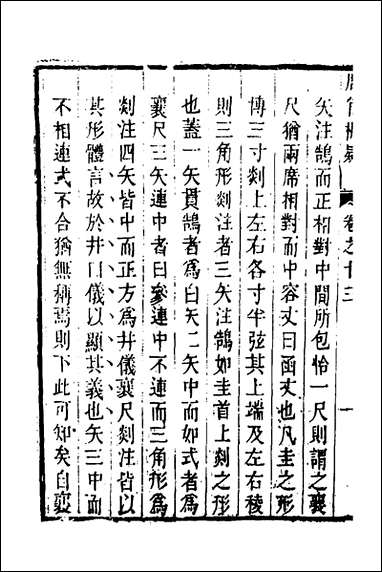 周官析疑 卷之十三 一
矢注鵠而正相對中間所包恰一尺則謂之襄
尺猶兩席相對而中容丈曰函丈也凡圭之形
博三寸剡上左右各寸半弦其上端及左右稜
則三角形剡注者三矢注鵠如圭首上剡之形
也蓋一矢貫鵠者為白矢二矢中而如式者為
襄尺三矢連中者曰參連中不連而三角形為
剡注四矢皆中而正方為井儀襄尺剡注皆以
其形體言故於井曰儀以顯其義也矢三中而
不相連式不合猶無稱焉則下此可知矣自襄